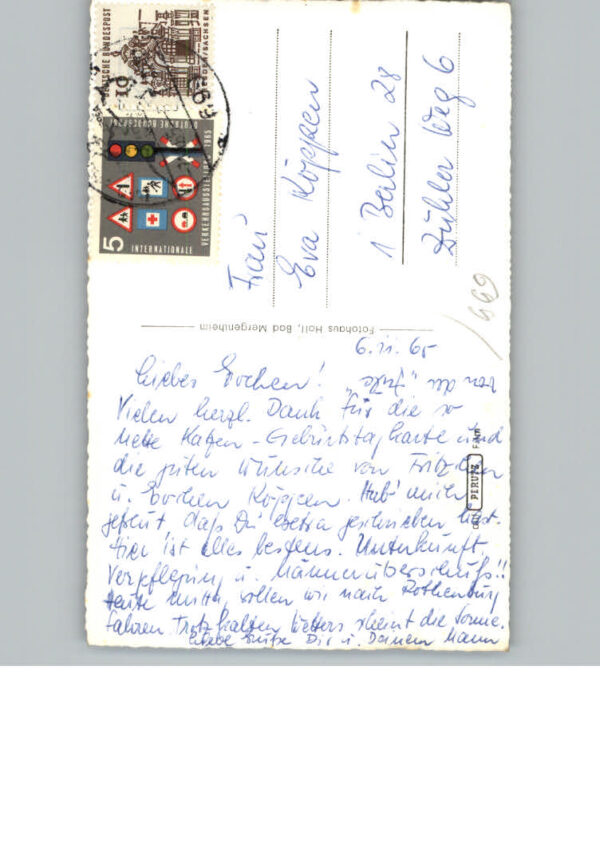 DEUTSCHE BUNDESPOST
5
INTERNATIONALE
VERKEHRSAUSSTELLUNG 1965
DEUTSCHE BUNDESPOST
Frau
Eva Köppen
1 Berlin 28
Zühler Weg 6
669
Fotohaus Holl, Bad Mergentheim
6.11.65
Liebes Evchen!
Vielen herzl. Dank für die so
nette Katzen-Geburtstagskarte und
die guten Wünsche von Fritzchen
u. Evchen Köppen. Hab' mich
gefreut, daß Du extra geschrieben hast.
Hier ist alles bestens. Unterkunft,
Verpflegung u. Männerüberschuß!!
Heute wollen wir nach Rothenburg
fahren. Trotz kalten Wetters scheint die Sonne.
Liebe Grüße Dir u. Deinem Mann
von
PERUTZ